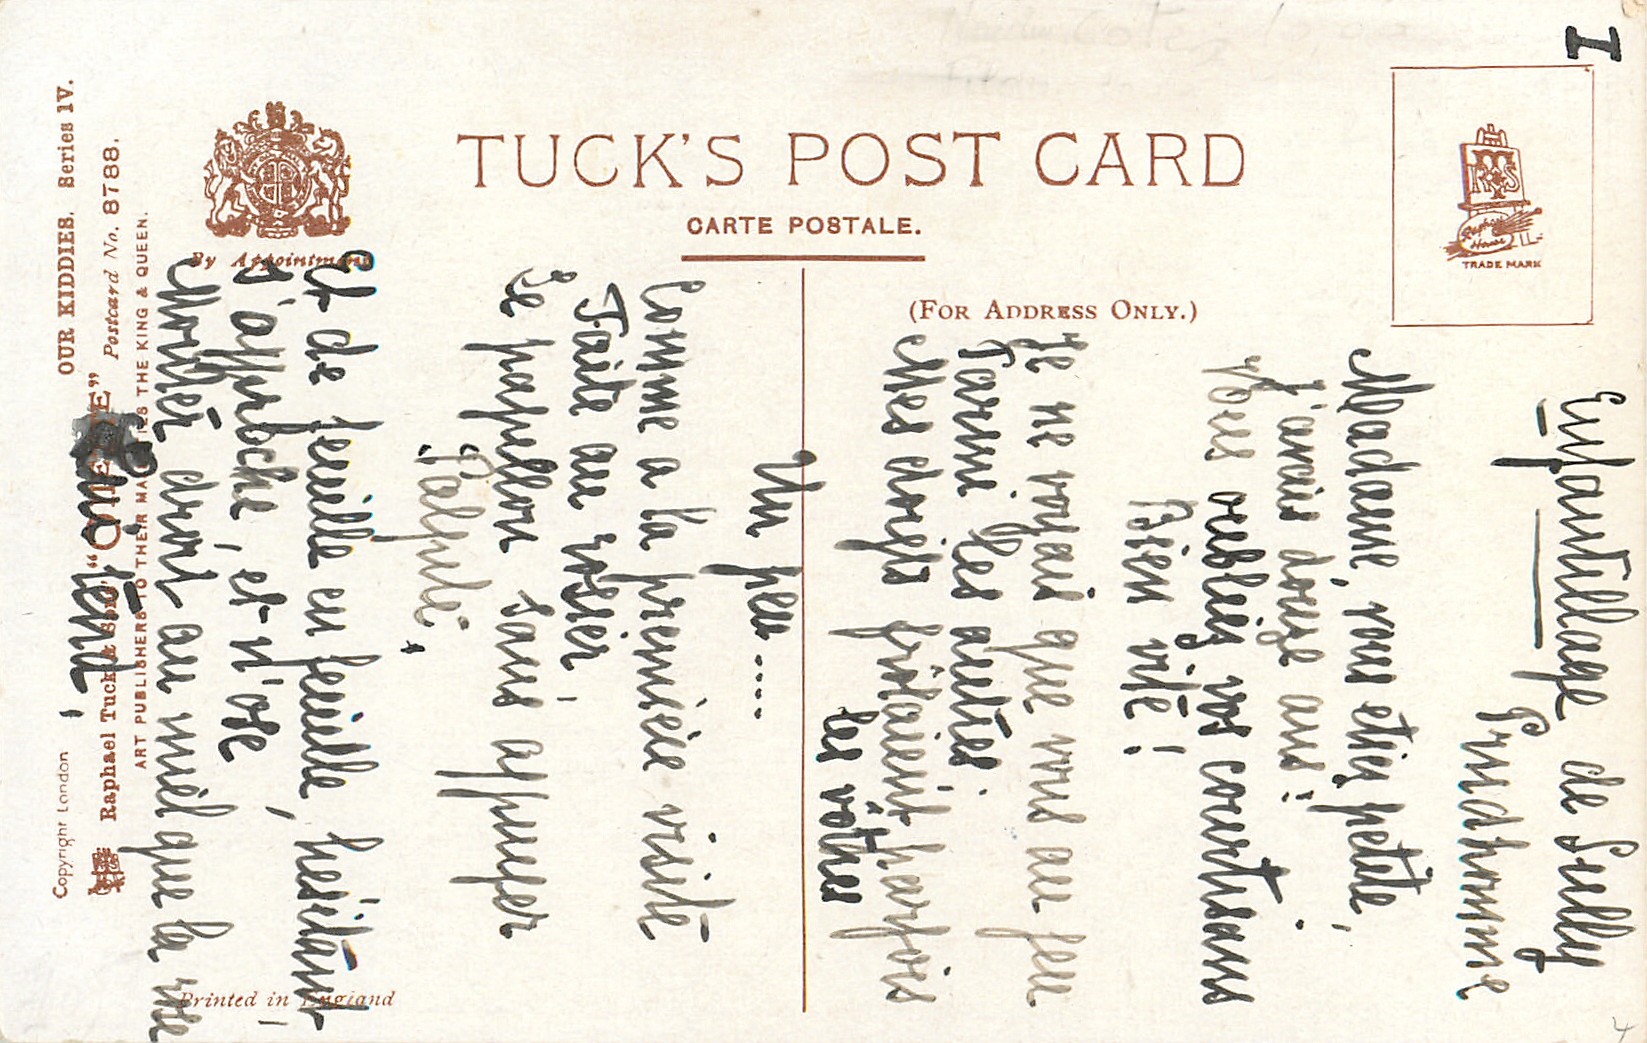 I
TUCK'S POST CARD
CARTE POSTALE.
(FOR ADDRESS ONLY.)
TRADE MARK
By Appointment
OUR KIDDIES. Series IV.
"OILETTE" Postcard No. 8788.
Raphael Tuck & Sons'
ART PUBLISHERS TO THEIR MAJESTIES THE KING & QUEEN.
Copyright London
Printed in England
Enfantillage de Sully
Prudhomme
Madame, vous etiez petite,
J'avais douze ans!
Vous oubliez vos courtisans
Bien vite!
Je ne voyais que vous au jeu
Parmi les autres.
Mes doigts frôlaient parfois
les vôtres
Un peu.....
Comme a la première visite
Faite au rosier,
Le papillon sans appuyer
Palpite,
Et de feuille en feuille, hesitant
S'approche, et n'ose
Monter droit au miel que la rose
lui tend,
4